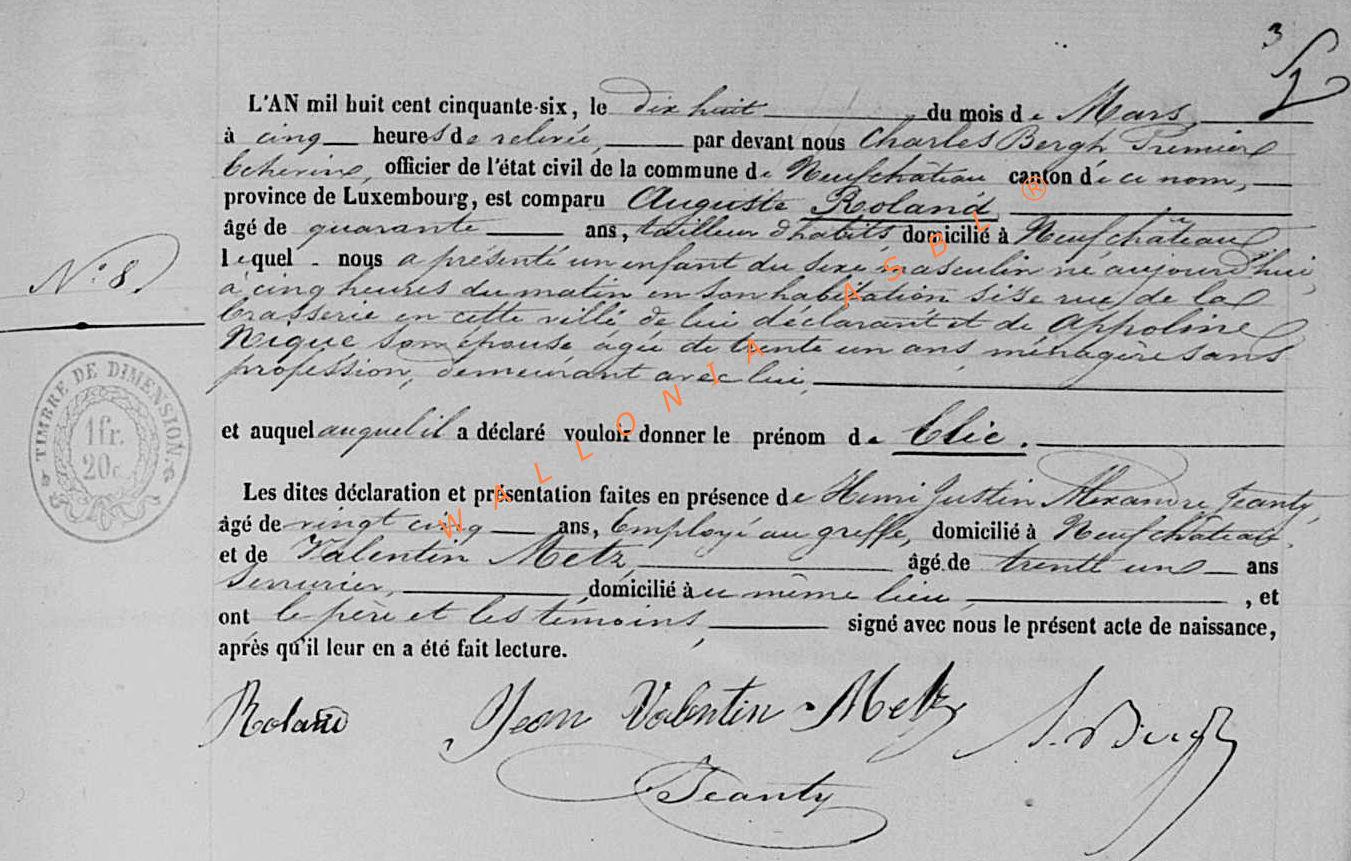 3
L'AN mil huit cent cinquante-six, le dix huit du mois de Mars
à cinq heures de relevée, par devant nous Charles Bergh Premier
Echevin, officier de l'état civil de la commune de Neufchâteau canton de ce nom,
province de Luxembourg, est comparu Auguste Roland
âgé de quarante ans, tailleur d'habits domicilié à Neufchâteau
lequel nous a présenté un enfant du sexe masculin né aujourd'hui,
à cinq heures du matin en son habitation sise rue de la
brasserie en cette ville de lui déclarant et de Appoline
Nique son épouse agée de trente un ans ménagère sans
profession, demeurant avec lui,
et auquel auquel il a déclaré vouloir donner le prénom de Elie.
Les dites déclaration et présentation faites en présence de Henri Justin Alexandre Jeanty,
âgé de vingt cinq ans, Employé au greffe, domicilié à Neufchâteau,
et de Valentin Metz, âgé de trente un ans
Serrurier, domicilié au même lieu, , et
ont le père et les témoins, signé avec nous le présent acte de naissance,
après qu'il leur en a été fait lecture.
Roland Jean Valentin Metz
Jeanty
N° 8.
TIMBRE DE DIMENSION
1fr.
20c
WALLONIA ASBL ®